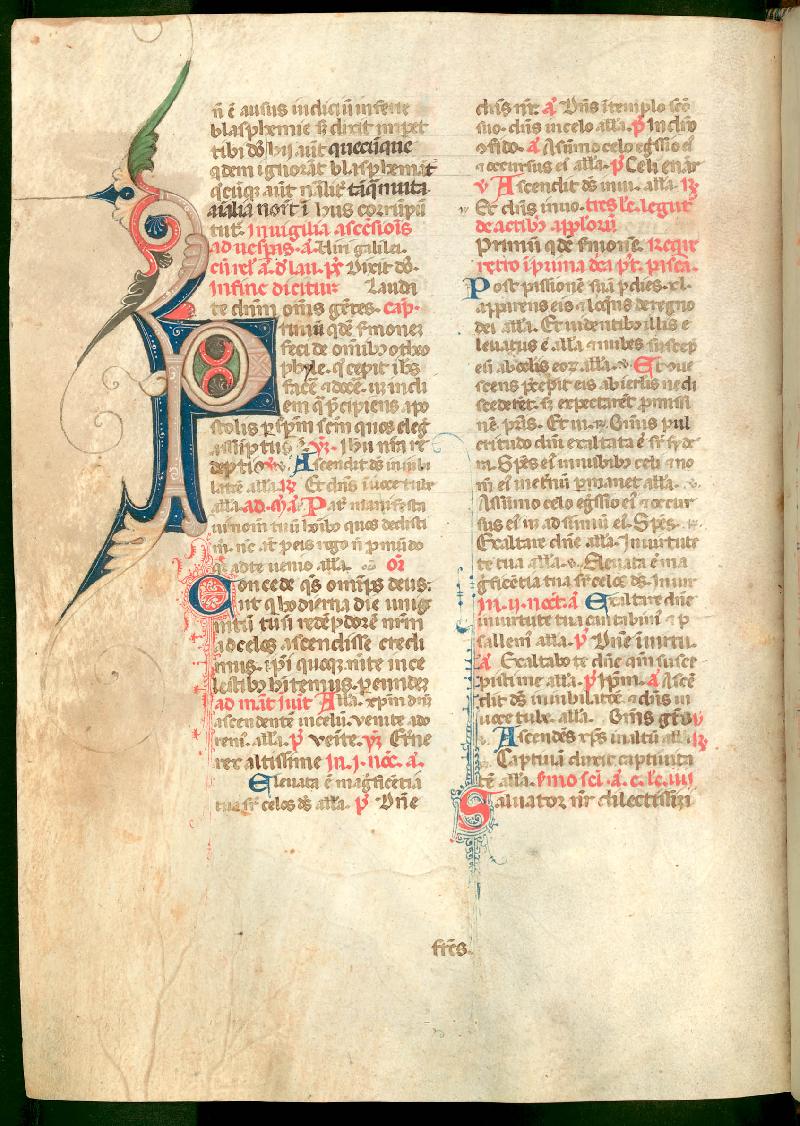 n̄ ē ausus iudiciū inferre
blasphemie s̄ dixit īpet
tibi dō hij aūt quecūque
qdem ignorāt blasphemāt
q̄cūq̨ aūt nāłit̃
hiis corrūpū
tur. In uigilia ascēsiōis
ad uesp̄is. ā. Uiri galilei.
cū rel̄. ā. d̄ lau. p̄s Dixit dō.
In fine dicitur Lauda
te dnm̄ om̄s gētes. cap̄.
Primū qdē s̄monez
feci de omībȝ o theo
phyle. q̄ cepit ihs̄
facē ⁊ docē. in
em q̄ p̄cipiens apo
stolis ꝑ sp̄m scm̄ quos eleg
assūptus ÿ. Ihū nr̄a re
deptio Ascendit dš iniubi
latōe alla. ꝶ Et dn̄s ī uoce tube
alla. ad. m̄. ā. Pat̄ manifesta
ui nom̄ tuū hōibȝ quos dedisti
m̄. nc̄ aūt ꝑ eis rogo n̄ ꝑ mūdo
q̄ ad te uenio alla. or̄
Concede qš om̄ps deus.
ut q̨ hodierna die unig
nitū tuū redēptorē nr̄m
ad celos ascendisse credi
mus. ip̄i quoq̨ mēte ī ce
lestibȝ hītemus. ꝑ eumdeȝ
ad māt̄ īuit̄ Alla. xp̄m dn̄
ascendentē in celū. uenite ado
rem̄. alla. p̄s Venīte. ym̄ Eterne
rex altissime In. j. noc̄. ā.
Eleuata ē mag̃ficētia
tua sr̄ celos dš alla. p̄ Dn̄e
dn̄s nr̄. ā Dn̄s ī templo sc̄o
suo. dn̄s in celo alla. p̄ In dn̄o
ꝯfido. ā A sūmo celo eg̃ssio ei
⁊ occursus ei alla. p̄ Celi enār̄
v̄ Ascendit dš in iu. alla. ꝶ
Et dn̄s in uo. tres łc̄. legūt̄
de actibȝ aplorū
Primū qdē s̄monē. Require
retro ī prima dn̄ca p̄t. pasca.
Post passionē suā ꝑ dies. xl.
apparens eis ⁊ loq̄ns de regno
dei alla. Et uidentibȝ illis e
leuatus ē alla ⁊ nubes suscep
eū ab oculis eoȝ alla. v̄ Et ꝯue
scens p̄cepit eis ab ierlis ne di
scederēt. s̄ expectarēt ꝓmissi
nē pr̄is. Et in. Om̄is pul
critudo dn̄i exaltata ē sr̄ syde
ra. Spēs eī ī nubibȝ celi ⁊ no
m̄ ei īeternū ꝑmanet alla.
A sūmo celo eg̃ssio eī ⁊ occur
sus eī ad sūmū eī. Spēs.
Exaltare dn̄e alla. In uirtute
tua alla. v̄ Eleuata ē ma
g̃ficētia tua sr̄ celos dš. In uir
In. ij. noct. ā Exaltare dn̄e
in uirtute tua cantabim̄ ⁊ p
sallem̄ alla. p̄ Dn̄e ī uirtu.
ā Exaltabo te dn̄e qm̄ susce
pisti me alla. p̄ Ip̄m. ā Ascē
dit dš in iubilatōe ⁊ dn̄s in
uoce tube. alla. Om̄s gētes v̄
Ascendēs xp̄s in altū alla. ꝶ
Captiuā duxit captiuita
tē alla. Smo sc̄i
Saluator nr̄ dilectissimi
fr̄es.